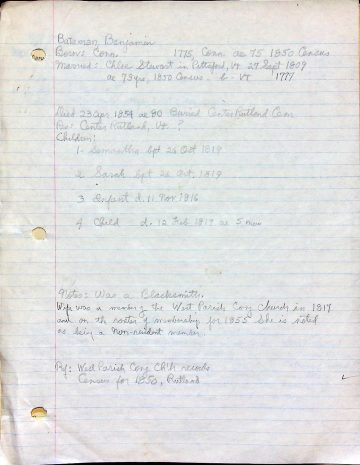 Bateman, Benjamin
Born: Conn. 1775, Conn. ae 75 1850 Census
Married: Chloe Stewart in Pittsford, Vt 27 Sept 1809
ae 73 yrs, 1850 Census. b. VT 1777
Died 23 Apr 1854 ae 80 Buried Center Rutland Cem
Res: Center Rutland, Vt. ?
Children:
1- Samantha bpt 26 Oct 1819
2 Sarah bpt 26 Oct, 1819
3 Infant d. 11 Nov 1816
4 Child d. 12 Feb 1819 ae 5 mos
Notes: Was a Blacksmith.
Wife was a member of the West Parish Cong Church in 1817
and on the roster of membership for 1855 she is noted
as being a non-resident member.
Ref: West Parish Cong Ch'h records
Census for 1850, Rutland